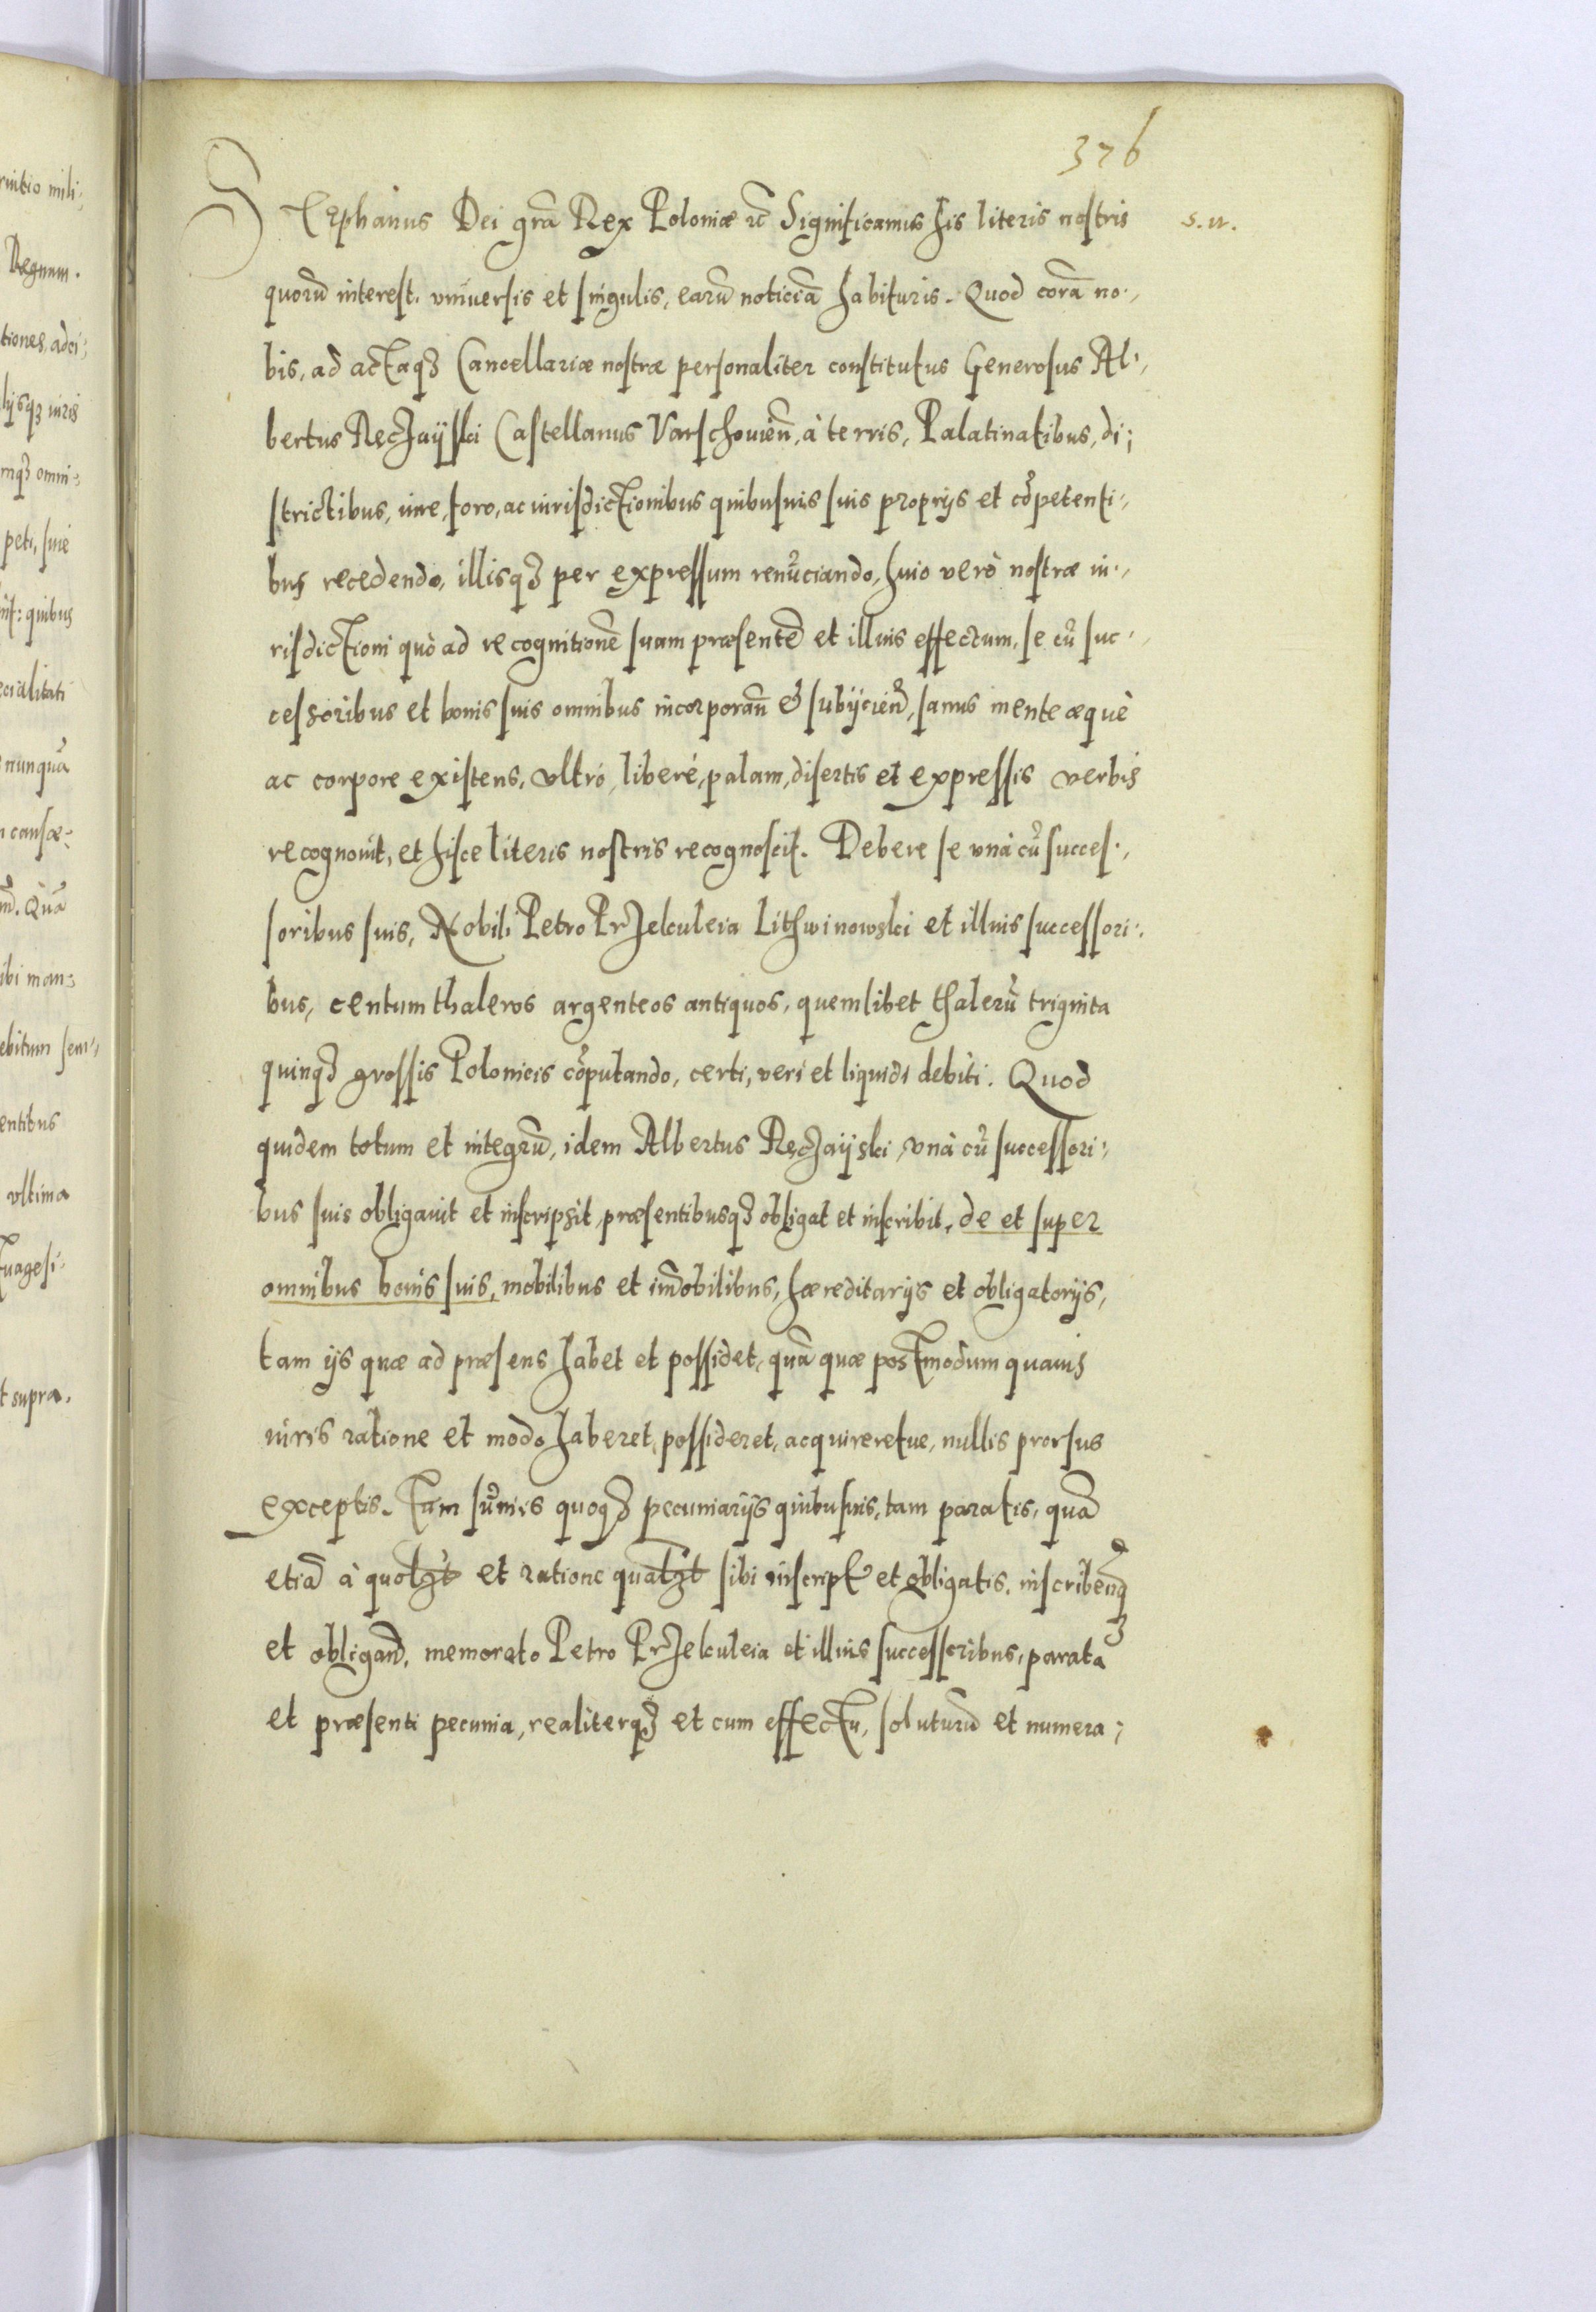 376
Stephanus Dei grā Rex Poloniæ rc̄ Significamus his literis nostris
s. n.
quorū interest. vniuersis et singulis, earū noticiā habituris. Quod corā no-
bis, ad actaqꝫ Cancellariæ nostræ personaliter constitutus Generosus Al-
bertus Reczaÿski Castellanus Varschouien̄, à terris, Palatinatibus, di-
strictibus, iure, foro, ac iurisdictionibus quibusuis suis proprijs et cōpetenti-
bus recedendo, illisqꝫ per expressum renūciando, huic verò nostræ iu-
risdictioni quò ad recognitionē suam præsentē et illius effectum, se cū suc-
cessoribus et bonis suis omnibus incorporan̄ & subijcien̄, sanus mente æquè
ac corpore existens, vltrò, liberè, palam, disertis et expressis verbis
recognouit, et hisce literis nostris recognoscit. Debere se vnà cū succes-
soribus suis, Nobili Petro Przekuleia Lithwinowski et illius successori-
bus, centum thaleros argenteos antiquos, quemlibet thalerū triginta
quinqꝫ grossis Polonicis cōputando, certi, veri et liquidi debiti. Quod
quidem totum et integrū, idem Albertus Reczaÿski, vnà cū successori-
bus suis obligauit et inscripsit, præsentibusqꝫ obligat et inscribit, de et super
omnibus bonis suis, mobilibus et im̄obilibus, hæreditarijs et obligatorijs,
tam ijs quæ ad præsens habet et possidet, quā quæ postmodum quauis
iuris ratione et modo haberet, possideret, acquireretue, nullis prorsus
exceptis. Tam sum̄is quoqꝫ pecuniarijs quibusuis, tam paratis, quā
etiā à quolꝫt et ratione qualꝫt sibi inscript̉ et obligatis, inscribend̄
et obligand̄, memorato Petro Przekuleia et illius successoribus, parata
et præsenti pecunia, realiterqꝫ et cum effectu, soluturū et numera-
rnitio mili-
Regnum.
tiones, adci-
lijsqꝫ iuris
mqꝫ omni-
peti, siue
quibus
ecialitati
nunquā
causæ-
Quā
ibi man-
ebitum sem-
entibus
vltima
tuagesi-
t supra.